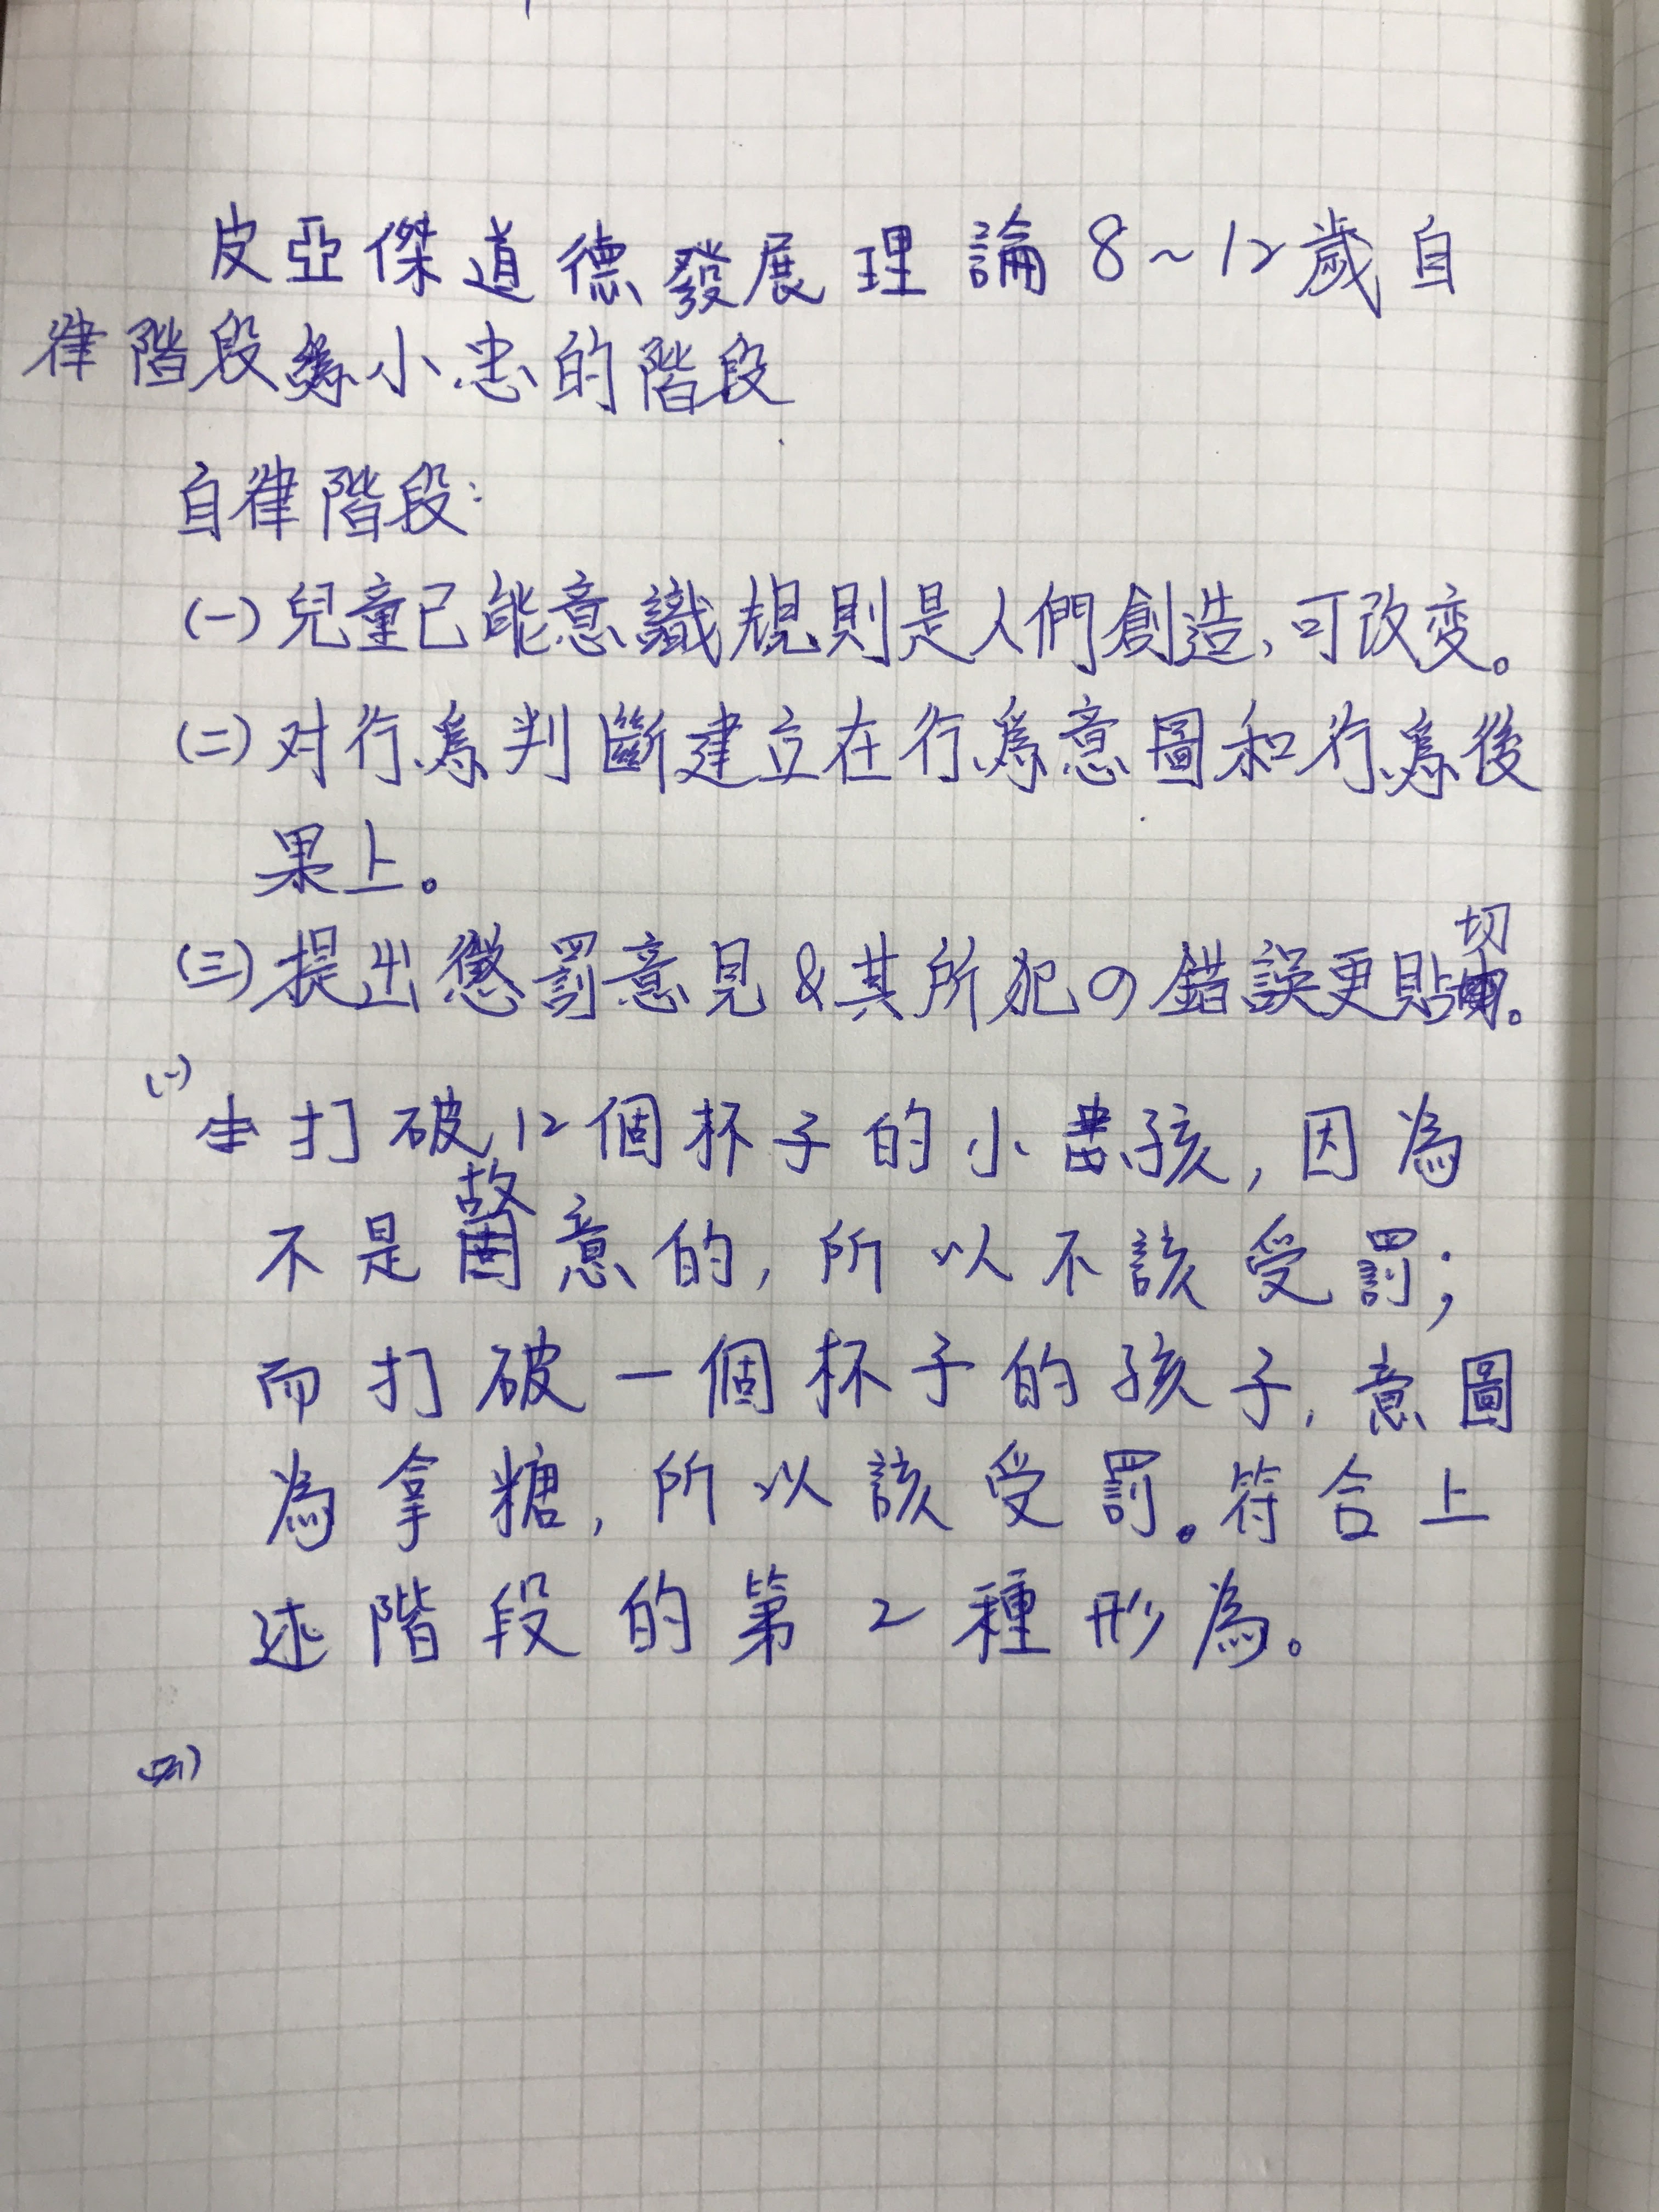 皮亞傑道德發展理論8~12歲自
律階段為小忠的階段
自律階段:
(一)兒童已能意識規則是人們創造,可改変。
(二)对行為判斷建立在行為意圖和行為後
果上。
(三)提出懲罰意見&其所犯の錯誤更貼切。
(一)
打破12個杯子的小孩,因為
不是故意的,所以不該受罰;
而打破一個杯子的孩子,意圖
為拿糖,所以該受罰。符合上
述階段的第2種形為。